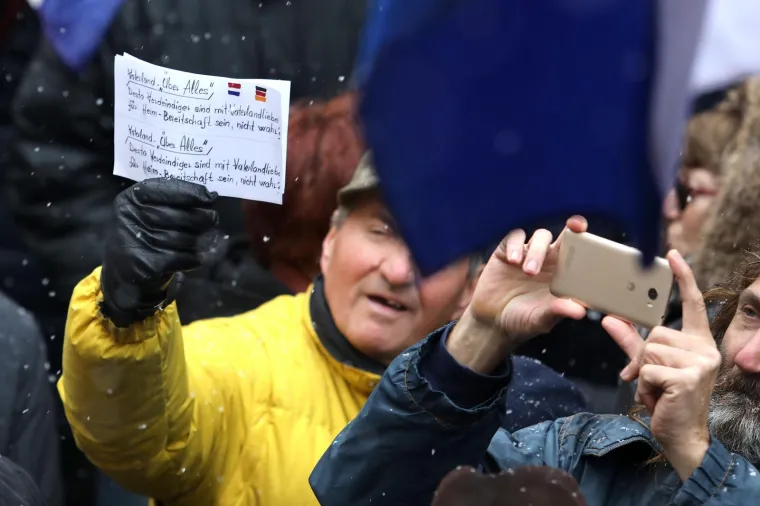 Vaterland „Über Alles"
Desto Verdeindiger sind mit Vaterlandliebe
für Heim-Bereitschaft sein, nicht wahr?
Vaterland „Über Alles"
Desto Verdeindiger sind mit Vaterlandliebe
für Heim-Bereitschaft sein, nicht wahr?